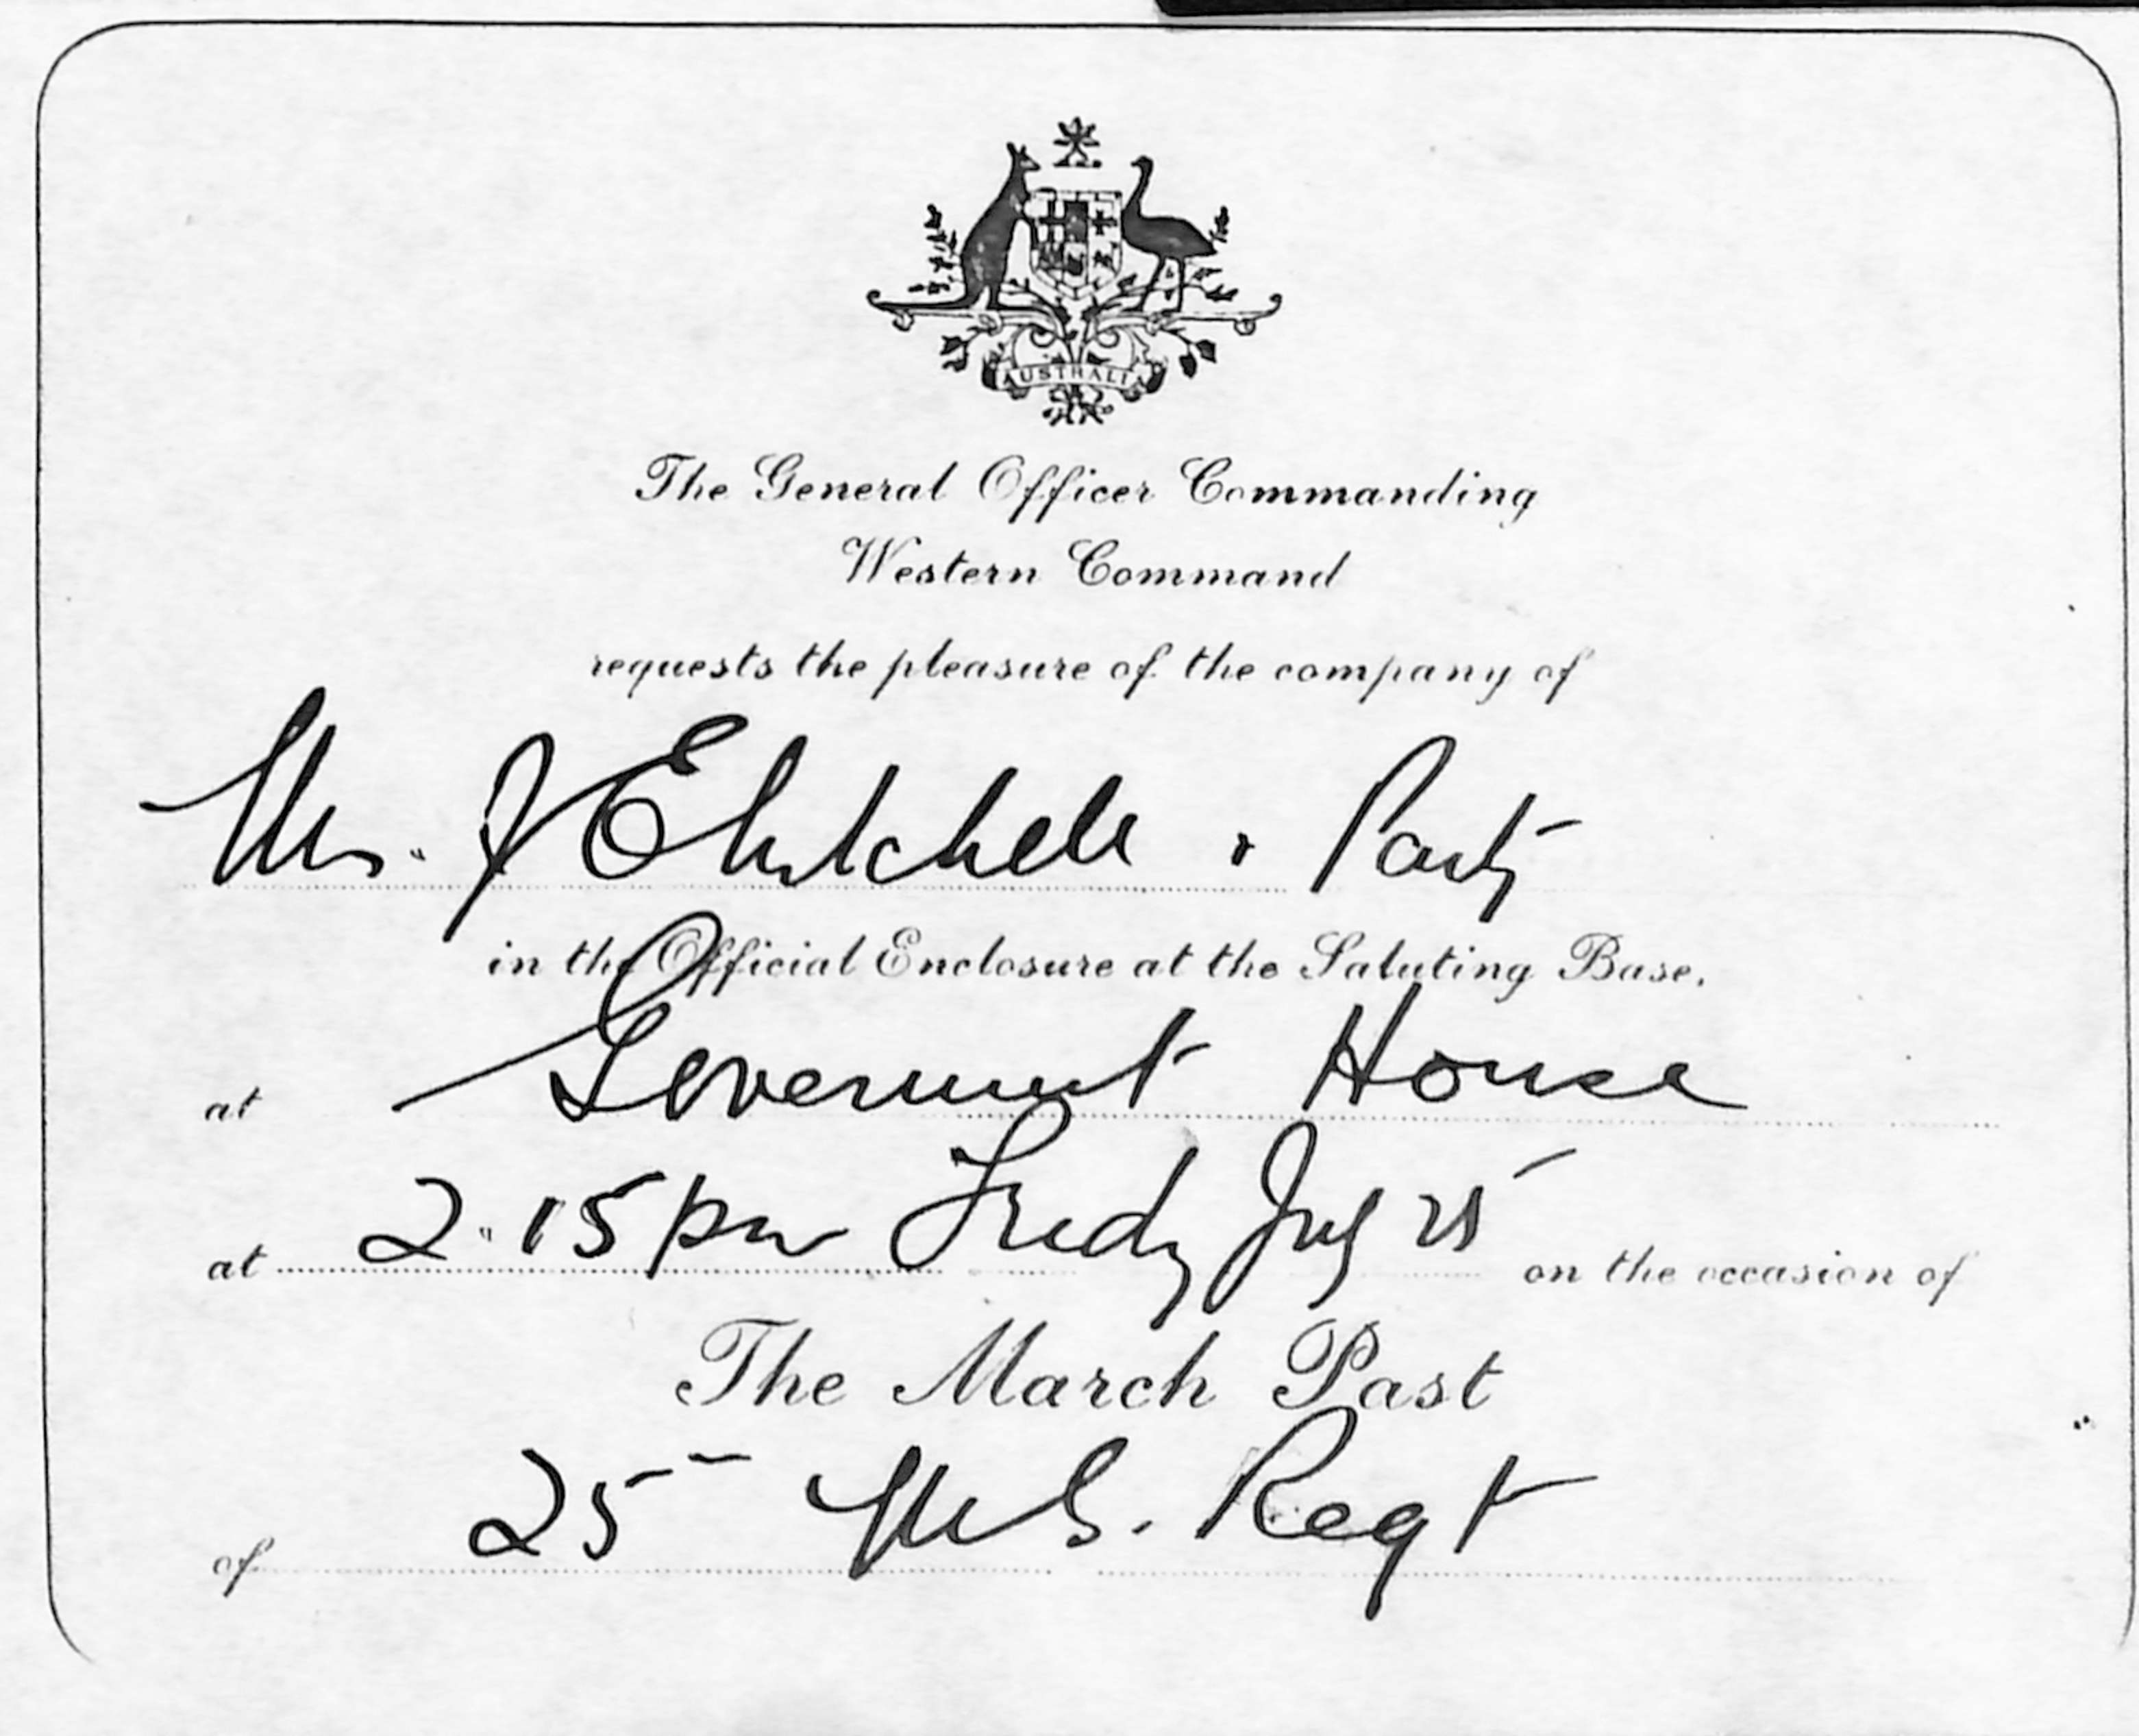 AUSTRALIA
The General Officer Commanding
Western Command
requests the pleasure of the company of
J & Party
in the Official Enclosure at the Saluting Base.
at Government House
at 2.15 pm Friday July 25 on the occasion of
The March Past
of 25 M.G. Regt